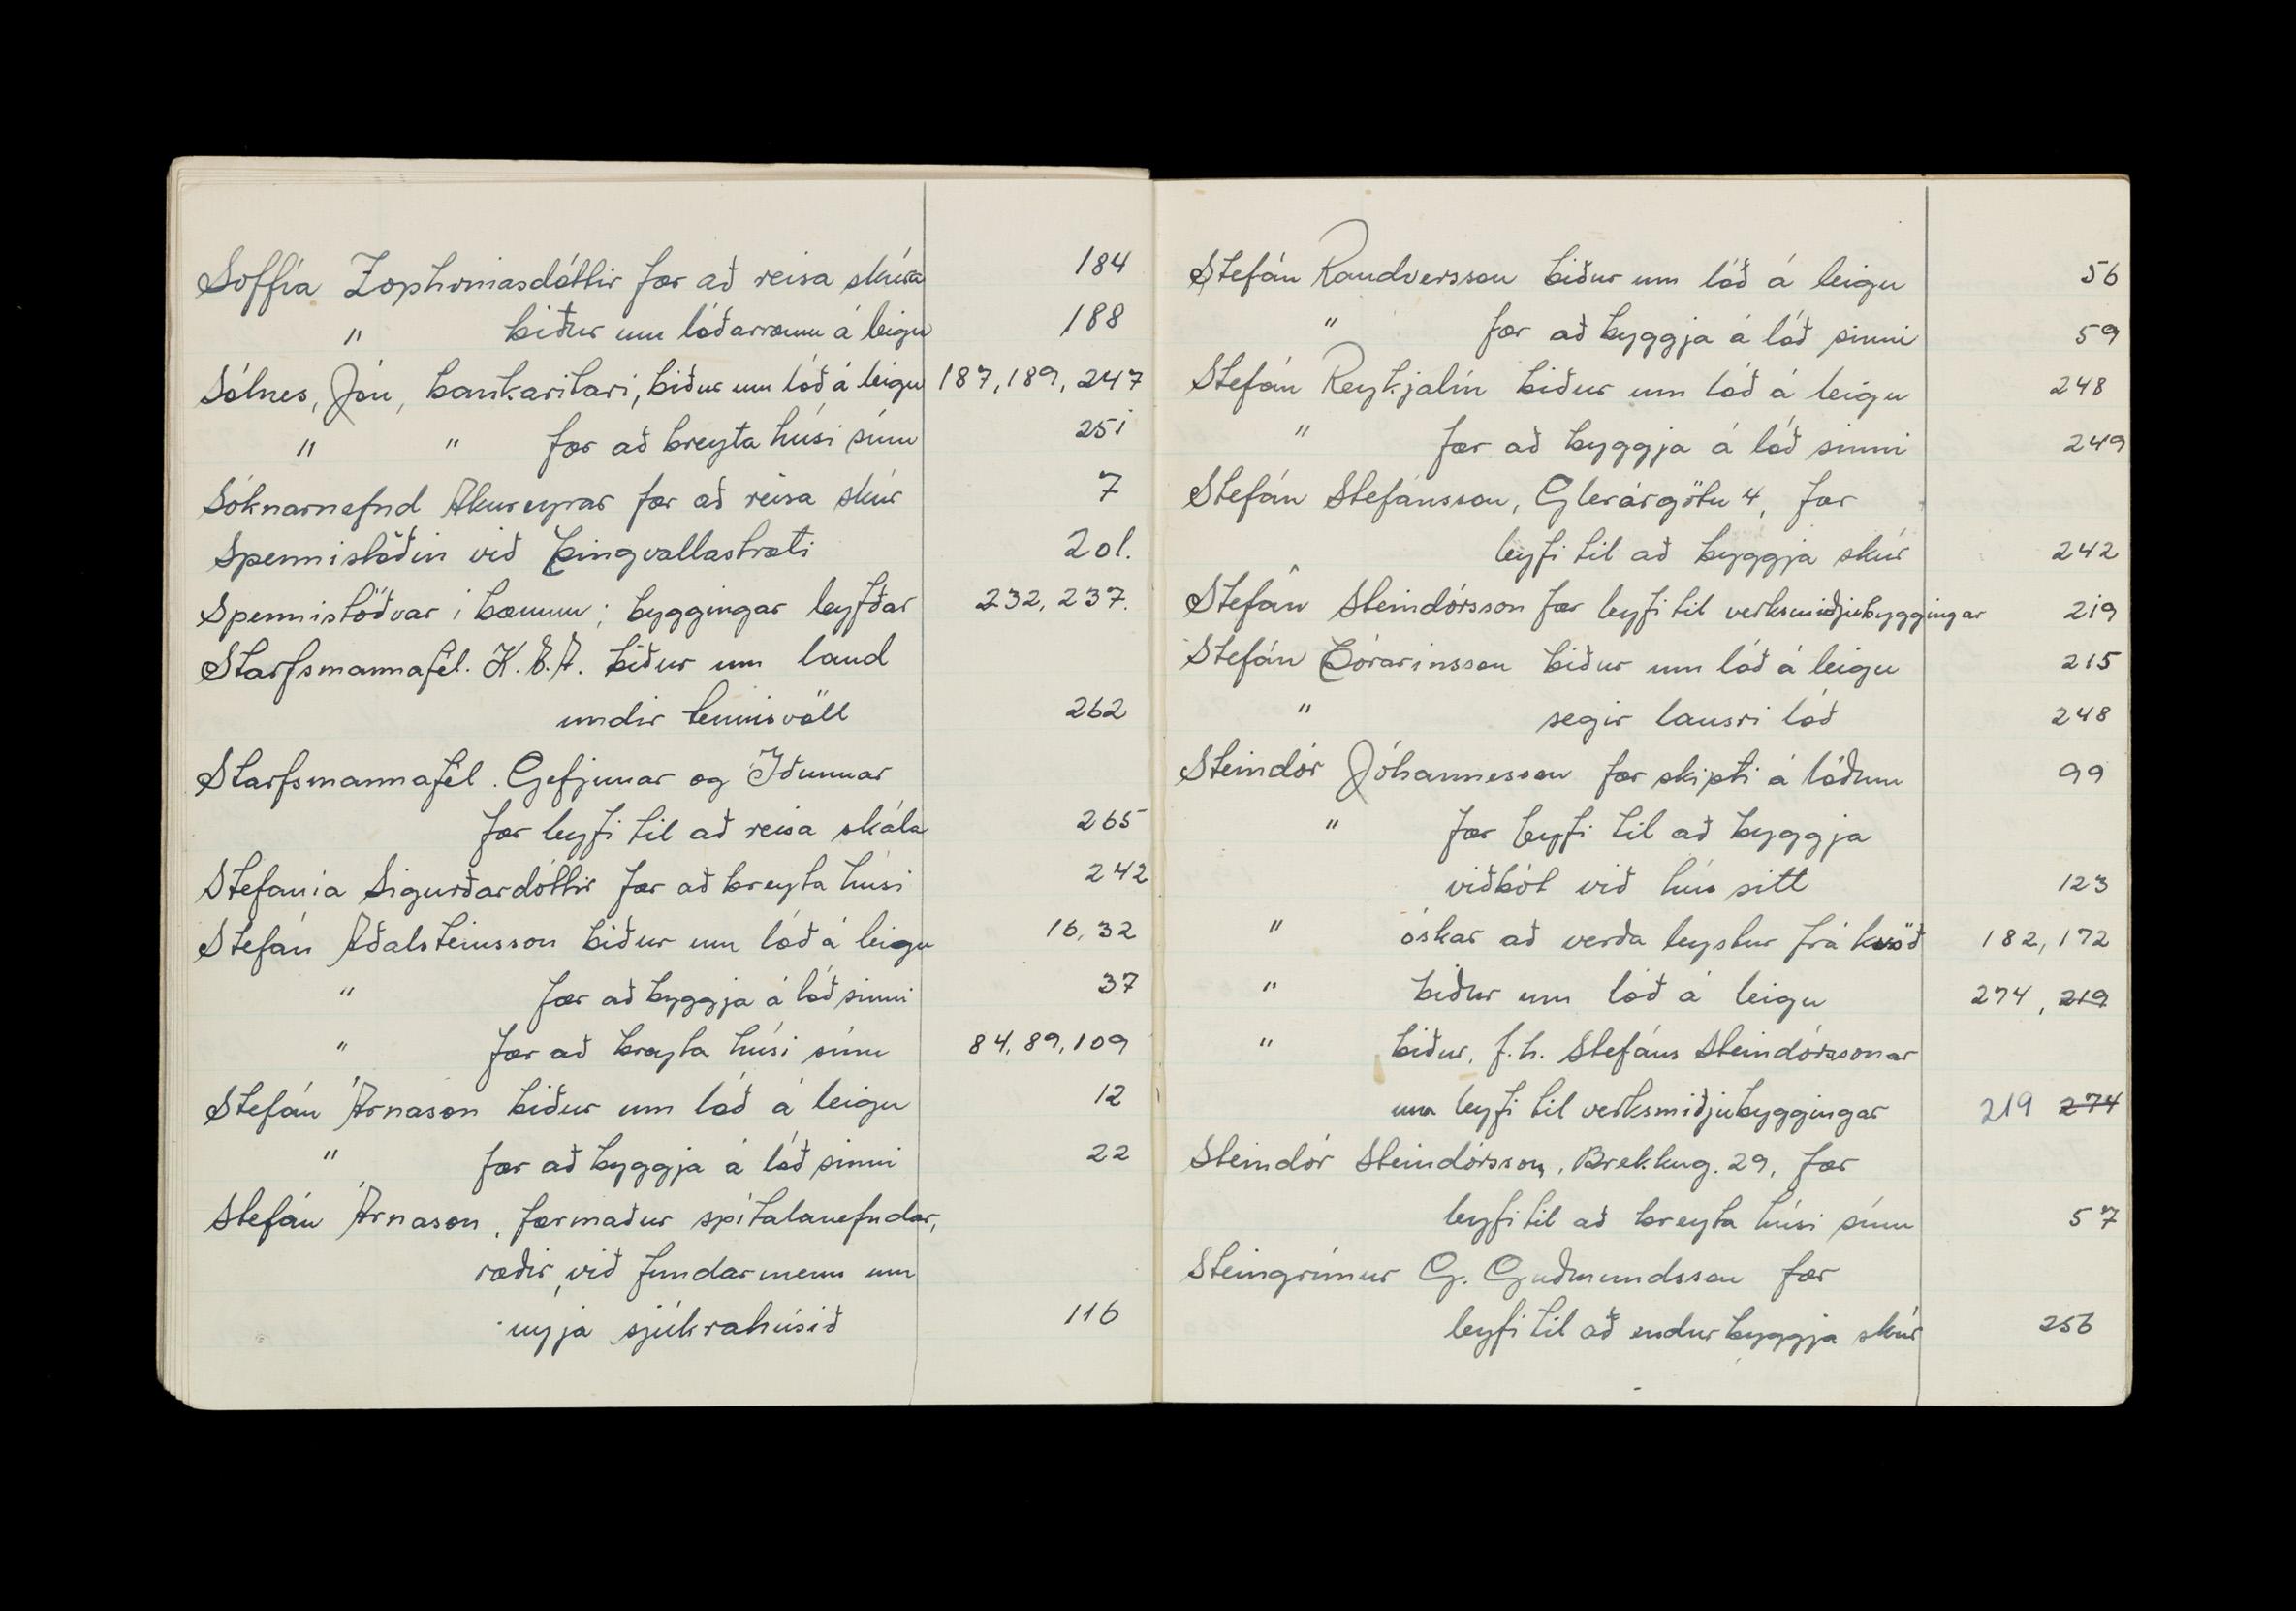 Soffía Zophoniasdóttir fær að reisa skúra 184
" biður um lóðarræmu á leigu 188
Sólnes, Jón, bankaritari, biður um lóð á leigu 187, 189, 247
" " fær að breyta húsi sínu 251
Sóknarnefnd Akureyrar fær að reisa skúr 7
Spennistöðin við Þingvallastræti 201.
Spennistöðvar í bænum; byggingar leyfðar 232, 237.
Starfsmannafél. K.E.A. biður um land
undir tennisvöll 262
Starfsmannafél. Gefjunar og Iðunnar
fær leyfi til að reisa skála 265
Stefania Sigurðardóttir fær að breyta húsi 242
Stefán Aðalsteinsson biður um lóð á leigu 16, 32
" fær að byggja á lóð sinni 37
" fær að breyta húsi sínu 84, 89, 109
Stefán Árnason biður um lóð á leigu 12
" fær að byggja á lóð sinni 22
Stefán Árnason, formaður spítalanefndar,
ræðir við fundarmenn um
nýja sjúkrahúsið 116
Stefán Randversson biður um lóð á leigu 56
" fær að byggja á lóð sinni 59
Stefán Reykjalín biður um lóð á leigu 248
" fær að byggja á lóð sinni 249
Stefán Stefánsson, Glerárgötu 4, fær
leyfi til að byggja skúr 242
Stefán Steindórsson fær leyfi til verksmiðjubyggingar 219
Stefán Þórarinsson biður um lóð á leigu 215
" segir lausri lóð 248
Steindór Jóhannesson fær skipti á lóðum 99
" fær leyfi til að byggja
viðbót við hús sitt 123
" óskar að verða leystur frá kvöð 182, 172
" biður um lóð á leigu 274, 219
" biður, f.h. Stefáns Steindórssonar
um leyfi til verksmiðjubyggingar 219 274
Steindór Steindórsson, Brekkug. 29, fær
leyfi til að breyta húsi sínu 57
Steingrímur G. Guðmundsson fær
leyfi til að endurbyggja skúr 256